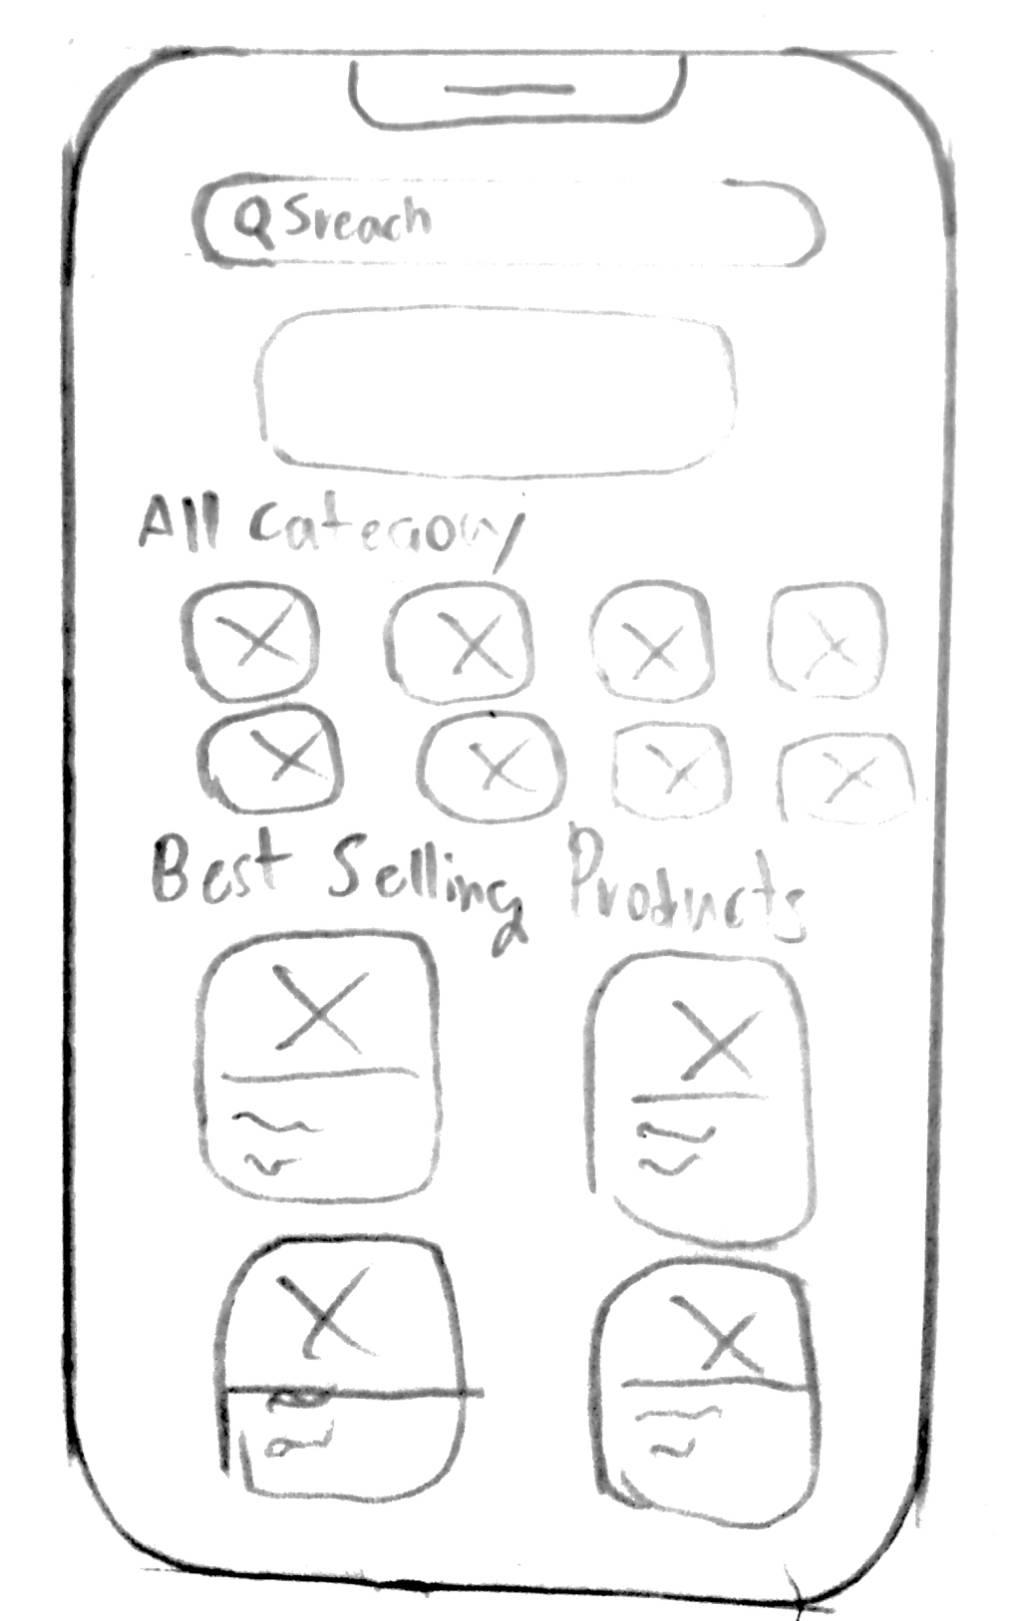 Sreach
All Category
Best Selling Products